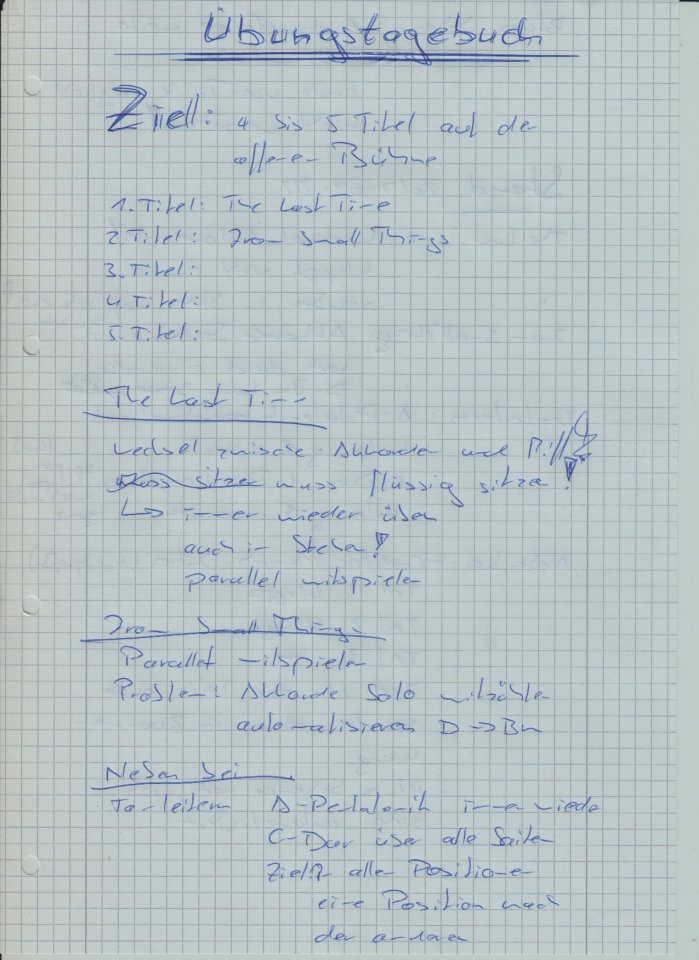 Übungstagebuch
Ziel: 4 bis 5 Titel auf der
offenen Bühne
1. Titel: The Last Time
2. Titel: From Small Things
3. Titel:
4. Titel:
5. Titel:
The Last Time
Wechsel zwischen Akkorden und Riff
muss sitzen muss flüssig sitzen!
↳ immer wieder üben
auch im Stehen!
parallel mitspielen
From Small Things
Parallel mitspielen
Problem: Akkorde Solo mitzählen
automatisieren D → Bm
Neben bei
Tonleitern A-Pentatonik immer wieder
C-Dur über alle Saiten
Ziel: allen Positionen
eine Position nach
der anderen